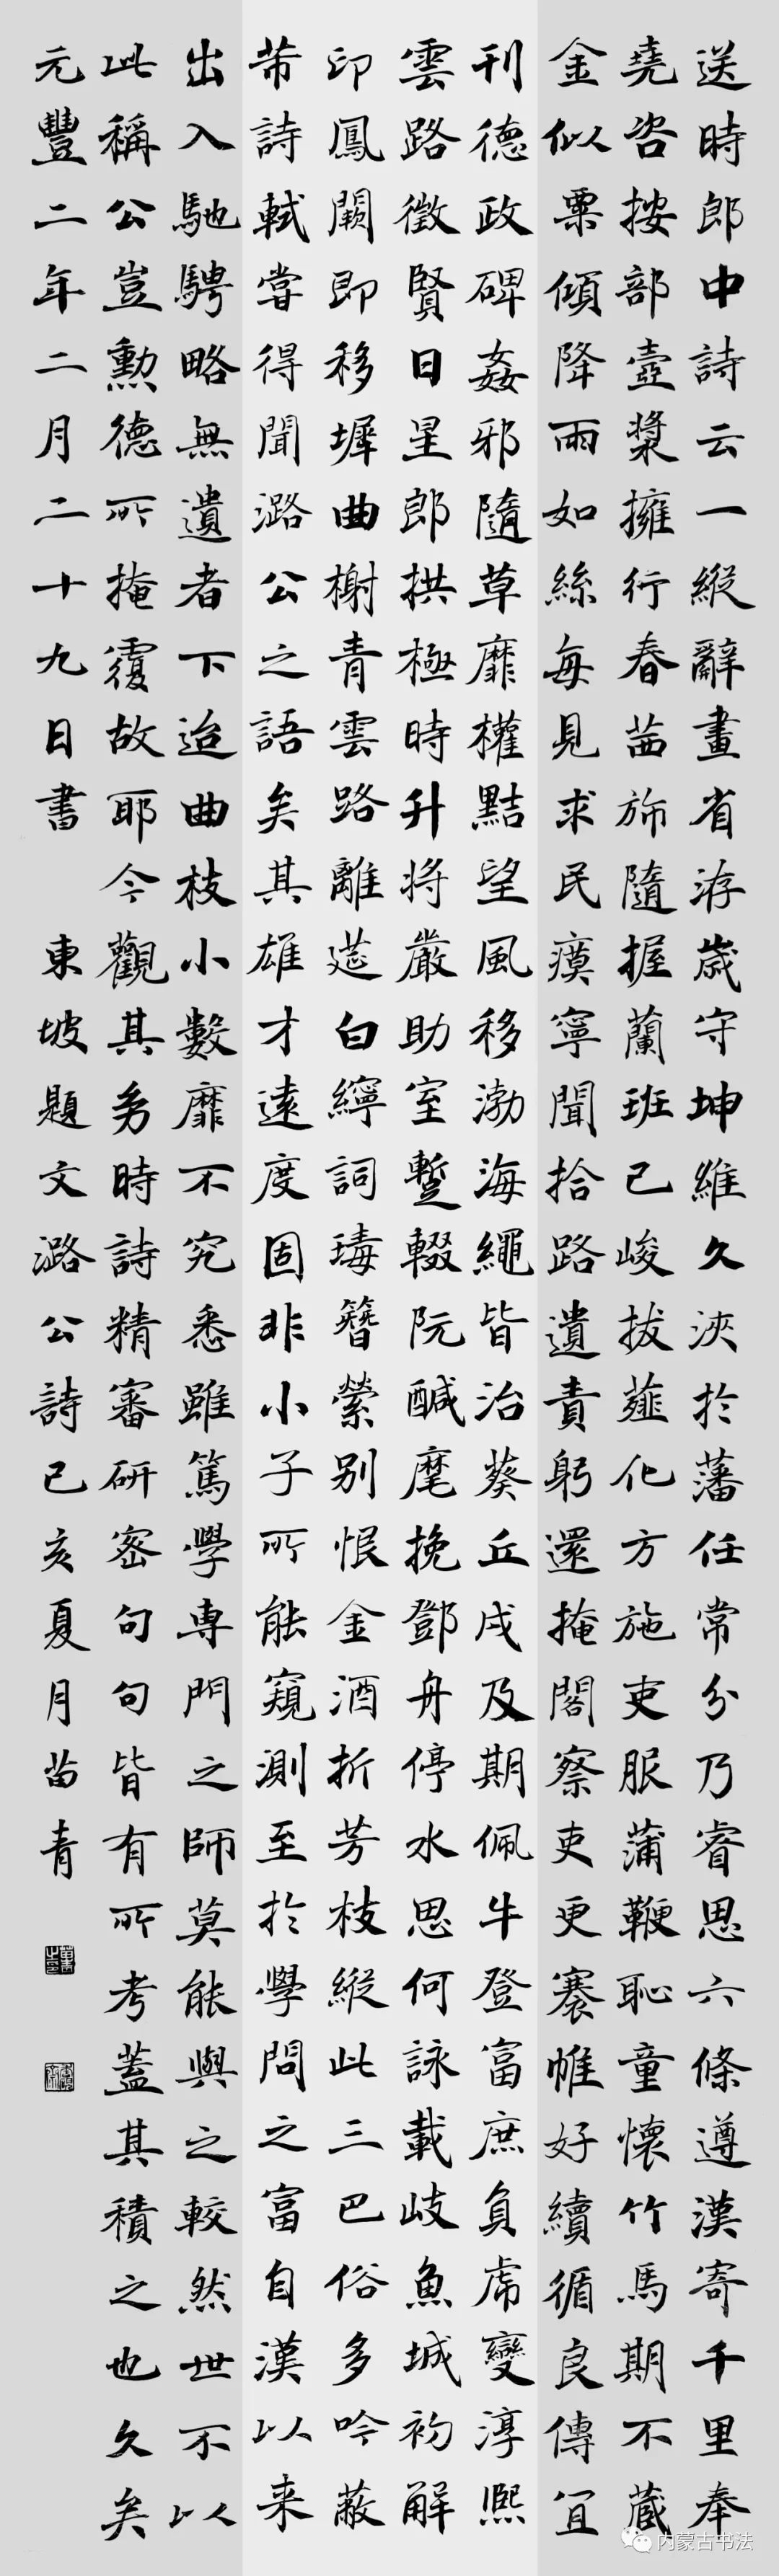 送時郎中詩云一縱辭畫省洊歲守坤維久浹於藩任常分乃睿思六條遵漢寄千里奉
堯咨按部壺漿擁行春茜旆隨握蘭班已峻拔薤化方施吏服蒲鞭恥童懷竹馬期不藏
金似粟傾降雨如絲每見求民瘼寧聞拾路遺責躬還掩閤察吏更褰帷好續循良傳宜
刊德政碑姦邪隨草靡權黠望風移渤海繩皆治葵丘戍及期佩牛登富庶負虎變淳熙
雲路徵賢日星郎拱極時升將嚴助室蹔輟阮鹹麾挽鄧舟停水思何詠載岐魚城初解
印鳳闕即移墀曲榭青雲路離莚白縟詞瑇簪縈別恨金酒折芳枝縱此三巴俗多吟蔽
芾詩軾嘗得聞潞公之語矣其雄才遠度固非小子所能窺測至於學問之富自漢以来
出入馳騁略無遺者下迨曲枝小數靡不究悉雖篤學専門之師莫能與之較然世不以
此稱公豈勲德所掩覆故耶今觀其多時詩精審研密句句皆有所考蓋其積之也久矣
元豐二年二月二十九日書 東坡題文潞公詩己亥夏月苗青
内蒙古书法